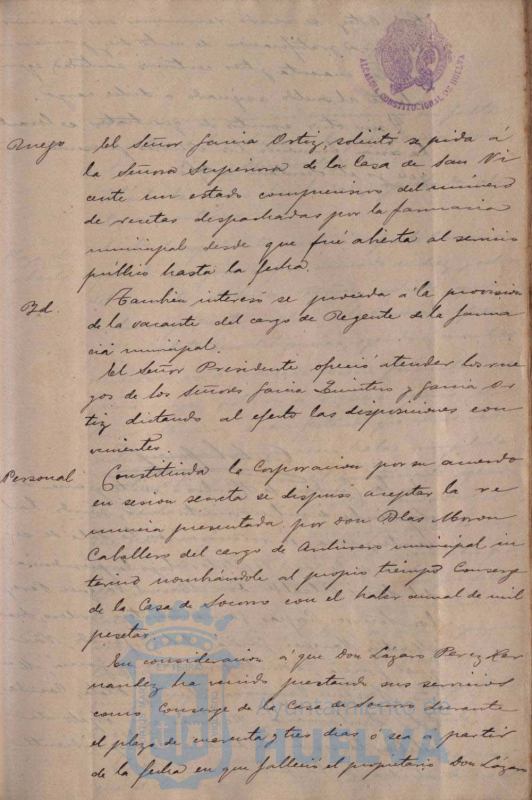 ALCALDIA CONSTITUCIONAL DE HUELVA
Ruego El Señor Garcia Ortiz, solicitó se pida á
la Señora Superiora de la Casa de San Vi
cente un estado comprensivo del número
de recetas despachadas por la farmacia
municipal desde que fué abierta al servicio
público hasta la fecha.
Id. Tambien interesó se proceda á la provision
de la vacante del cargo de Regente de la farma
cia municipal.
El Señor Presidente ofreció atender los rue
gos de los Señores Garcia Quintero y Garcia Or
tiz dictando al efecto las disposiciones con
vinientes.
Personal Constituida la Corporacion por su acuerdo
en sesion secreta se dispuso aceptar la re
nuncia presentada por Don Blas Moron
Caballero del cargo de Archivero municipal in
terino nombrándole al propio tiempo Conserge
de la Casa de Socorro con el haber anual de mil
pesetas.
En consideracion á que Don Lázaro Perez Her
nandez ha venido prestando sus servicios
como Conserge de la Casa de Socorro durante
el plazo de cuarenta y tres dias ó sea á partir
de la fecha en que falleció el propietario Don Lázaro
Ayuntamiento de
HUELVA